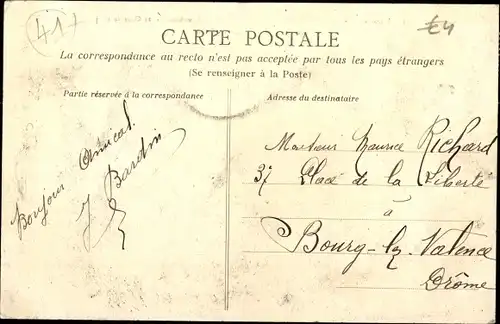 417
£4
CARTE POSTALE
La correspondance au recto n'est pas acceptée par tous les pays étrangers
(Se renseigner à la Poste)
Partie réservée à la correspondance
Adresse du destinataire
Bonjour Amical.
J Bardin
Monsieur Maurice Richard
37 Place de la Liberté
à
Bourg-lez-Valence
Drôme